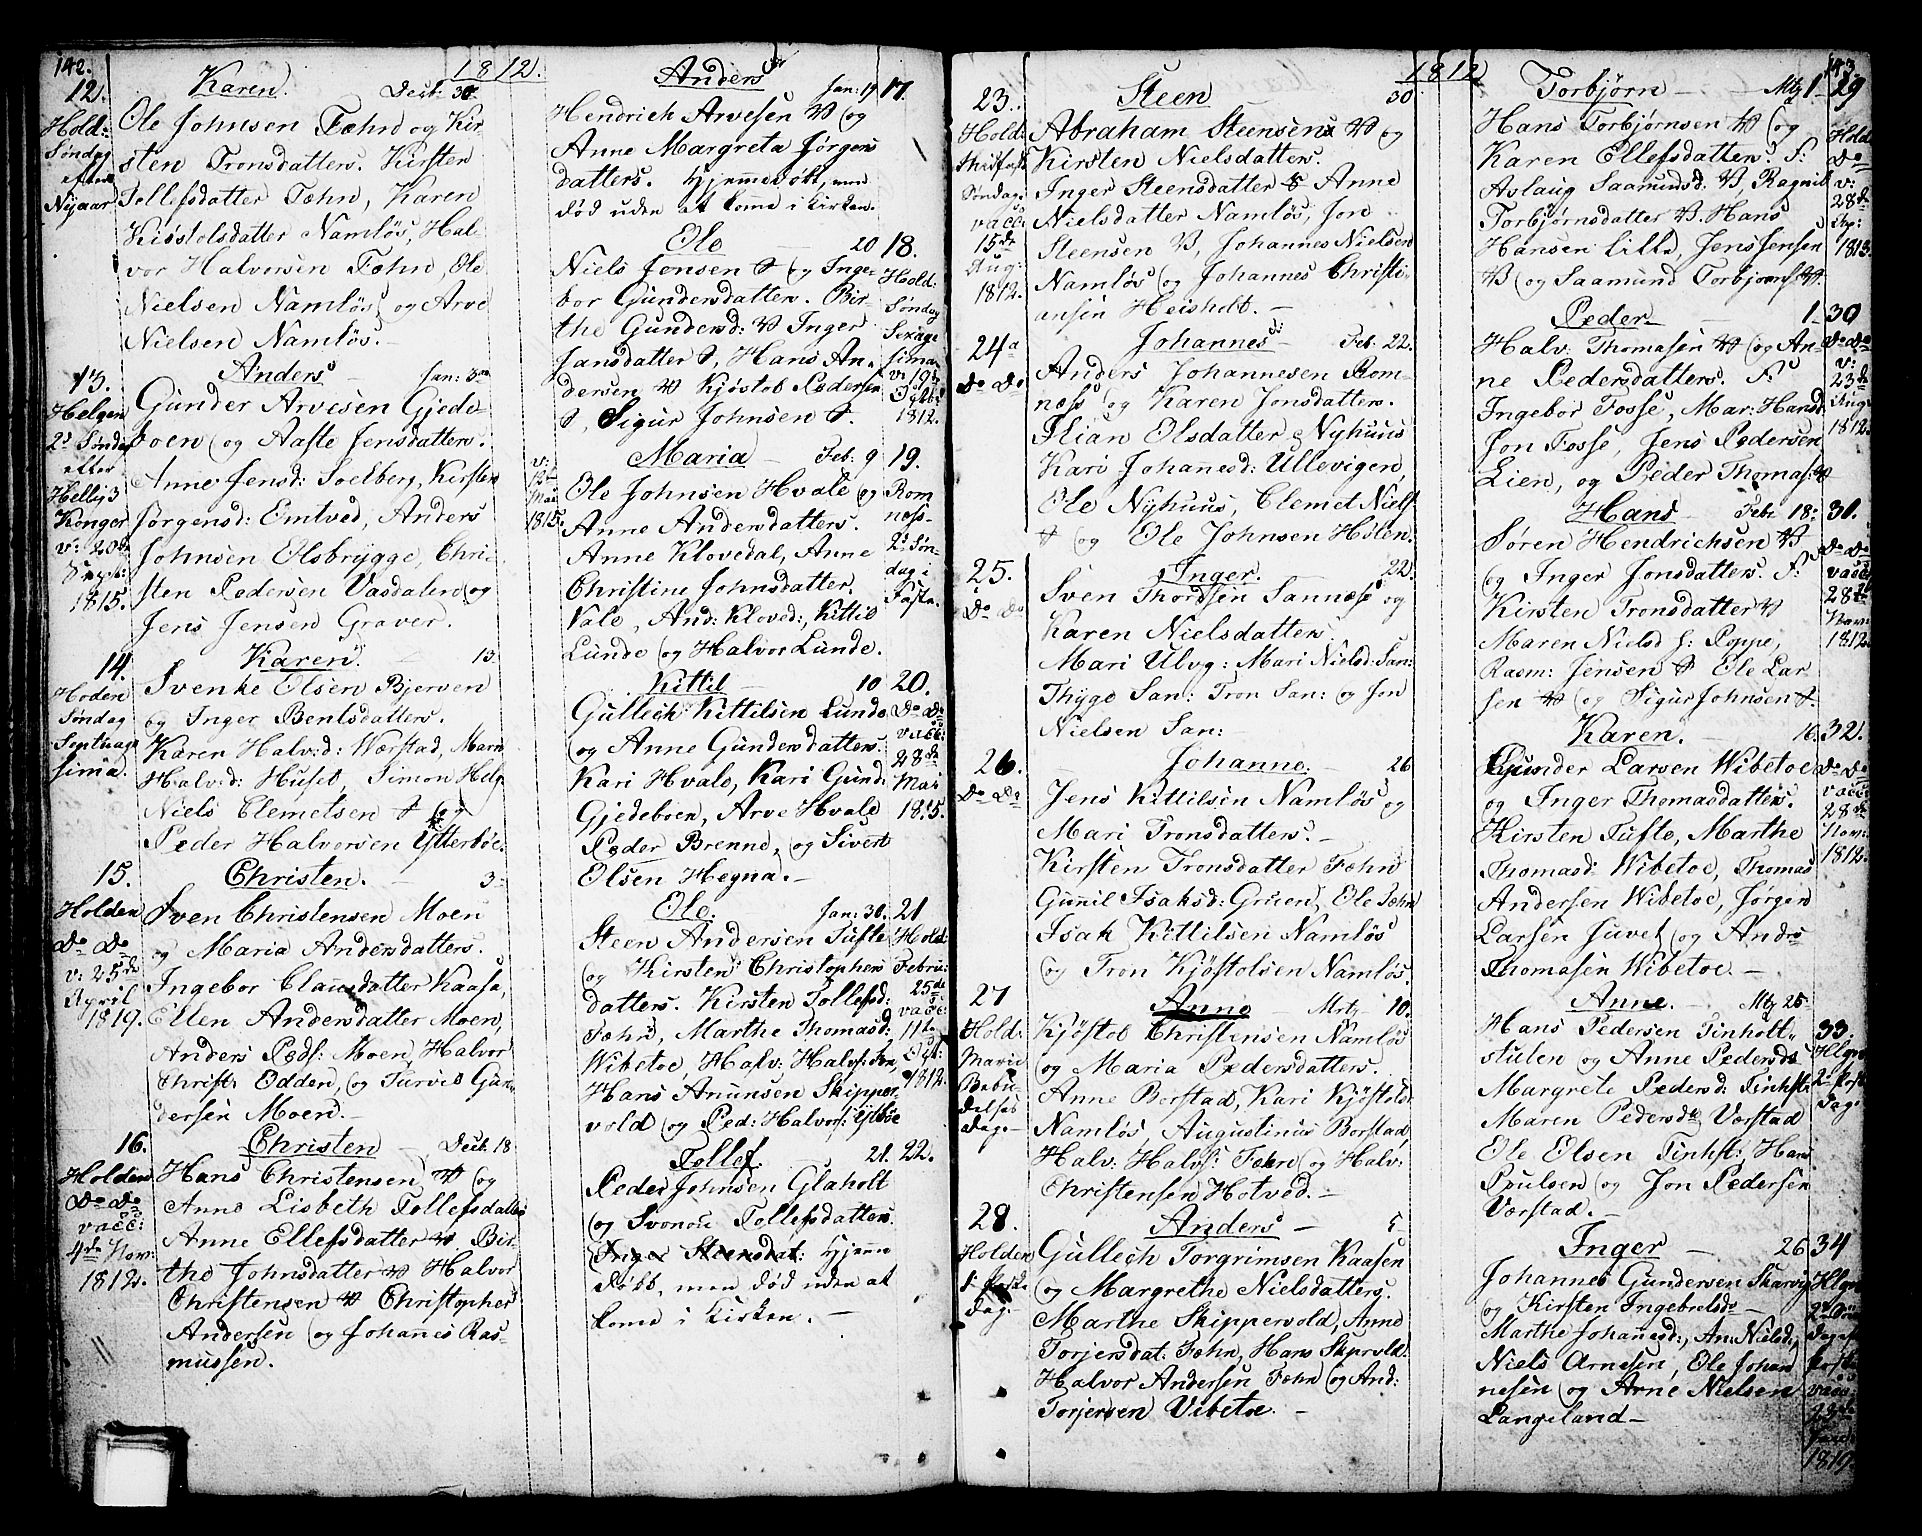 142.
1812.
12.
Hold:
Søndag
efter
Nyaar
Karen. Decb: 30
Ole Johnsen Fæhn og Kir
sten Tronsdatters. Kirsten
Tollefsdatter Fæhn, Karen
Kiøstolsdatter Namløs, Hal-
vor Halvorsen Fæhn, Ole
Nielsen Namløs og Arve
Nielsen Namløs.
13.
Helgen
2d Søndag
efter
Hellig 3
Konger
v: 20de
Sept:
1815.
Anders Jan: 3
Gunder Arvesen Gjede-
boen og Aaste Jensdatters.
Anne Jensd: Soelberg, Kirsten
Jørgensd: Emtved, Anders
Johnsen Olsbrygge, Chri-
sten Pedersen Vasdalen og
Jens Jensen Graver.
14.
Hoden
Søndag
Septuage
sima.
Karen. 13
Svenke Olsen Bjerven
og Inger Bentsdatters.
Karen Halv:d: Værstad, Maren
Halv:d: Huset, Simon Helg
Niels Clemetsen og
Peder Halvorsen Ytterbøe.
15.
Holden
Do Do
v: 25de
April
1819.
Christen. 3
Sven Christensen Moen
og Maria Andersdatters.
Ingebor Clausdatter Kaasa,
Ellen Andersdatter Moen,
Anders Peds: Moen, Halvor
Christ: Odden, og Turvis Gun-
dersen Moen.
16.
Holden
Do Do
vacc:
4de Nov:
1812.
Christen Decb: 18
Hans Christensen og
Anne Lisbeth Tollefsdatters
Anne Ellefsdatter Bir-
the Johnsdatter Halvor
Christensen Christopher
Andersen og Johanes Ras-
mussen.
Anders Jan: 19 17.
Hendrich Arvesen og
Anne Margreta Jørgens
datters. Hjemmedøbt, men
død uden at kome i Kirken.
Ole 20 18.
Hold:
Søndag
Sexage
sima
v: 19de
Octb:
1812.
Niels Jonsen og Inge-
bor Gundersdatter. Bir-
the Gundersd: Inger
Jansdatter, Hans An-
dersen Kjøstol Pedersen
Sigur Johnsen
v:
12te
Mai
1815.
Maria Feb: 9 19.
Rom
næss-
2d Søn-
dag i
Faste.
Ole Johnsen Hvale og
Anne Andersdatters.
Anne Klovedal, Anne
Christine Johnsdatter
Vale, And: Kloved:, Kittil
Lunde og Halvor Lunde.
Kittil 10 20.
Do Do
vacc:
28de
Mai
1815.
Gullech Kittilsen Lunde
og Anne Gundersdatters.
Kari Hvale, Kari Gund:
Gjedeboen, Arve Hvale
Peder Brenne, og Sivert
Olsen Hegna.
Ole. Jan: 30. 21
Hold:
Februa:
25de
vacc:
11te
Oct:
1812.
Steen Andersen Tufte
og Kirsten Christophers
datters. Kirsten Tollefsd:
Fæhn, Marthe Thomasd:
Wibetoe, Halv: Halvs: Fæn,
Hans Anunsen Skipper-
vold og Ped: Halvors: Ytbøe
Tollef. 21. 22.
Peder Johnsen Glaholt
og Svonou Tollefsdatters.
Inger Steensdat: Hjemme
døbb, men død uden at
kome i Kirken.
1812 143
23.
Hold:
Søndag.
vacc:
15de
Aug:
1812.
Steen 30
Abraham Steensen og
Kirsten Nielsdatters.
Inger Steensdatter Anne
Nielsdatter Namløs, Jon
Steensen, Johannes Nielsen
Namløs og Johannes Christi-
ansen Heisholt.
24
Do Do
Johannes Feb: 22.
Anders Johannesen Rom-
næss og Karen Jonsdatters.
Ilian Olsdatter Nyhuus
Kari Johanesd: Ullevigen,
Ole Nyhuus, Clemet Niels
og Ole Johnsen Holen.
25.
Do Do
Inger. 22.
Sven Thordsen Sannæs og
Karen Nielsdatters.
Mari Ulvg: Mari Nielsd: San:
Thyge San: Tron San: og Jon
Nielsen San:
26.
Do Do
Johanne. 26
Jens Kittilsen Namløs og
Mari Tronsdatters.
Kirsten Tronsdatter Fæhn
Gunil Isaksd: Gruen, Ole Fæhn
Isak Kittilsen Namløs
og Tron Kjøstolsen Namløs.
27
Hold:
Marie
Bebu
delses
Dag.
Anne Mrtz 10.
Kjøstol Christensen Namløs
og Maria Pedersdatters.
Anne Borstad, Kari Kjøstolsd:
Namløs, Augustinus Borstad,
Halv: Halvs: Fæhn og Halv:
Christensen Hotved.
28.
Holden
Dag.
Anders 5
Gullech Torgrimsen Kaasen
og Margrethe Nielsdatters.
Marthe Skippervold, Anne
Torjersdat: Fæhn, Hans Skiprvold:
Halvor Andersen Fæhn og And:
Torjersen Vibetoe.
Torbjørn Mtz 1 29
Hold
Do
v:
28de
1813.
Hans Torbjørnsen og
Karen Ellefsdatters. F:
Aslaug Saamunds: Ragnil
Torbjørnsdatter Hans
Hansen Lille, Jens Jensen
og Saamund Torbjørnsen
Peder 1. 30
Do Do
v:
23de
Aug
1812.
Halv: Thomasen og An-
ne Pedersdatters. F:
Ingebor Fosse, Mar: Hansd
Jon Fosse, Jens Pedersen
Lien, og Peder Thomas:
Hans Feb: 18: 31.
Do Do
vacc
28de
Nov
1812
Søren Hendrichsen
og Inger Jonsdatters. F:
Kirsten Tronsdatter
Maren Nielsd f: Pype,
Rasm: Jensen Ole Lar
sen og Sigur Johnsen
Karen. 16. 32.
Do Do
vacc
28de
Nov:
1812.
Gunder Larsen Wibetoe
og Inger Thomasdatters.
Kirsten Tufte, Marthe
Thomasd: Wibetoe, Thomas
Andersen Wibetoe, Jørgen
Larsen Juvet og Andrs
Thomasen Wibetoe.
Anne. Mtz 25
33.
Hlgen
2 Paaske
Dag.
Hans Pedersen Tinholt-
stulen og Anne Pedersdt
Margrete Pedersd: Tinhst:
Maren Pedersdt Værstad
Ole Olsen Tinhst: Hans
Poulsen og Jon Pedersen
Værstad.
Inger 26 34
Hlgen
vacc:
1819.
Johannes Gundersen Skarvig
og Kirsten Ingebretsd
Marthe Johanesd:, An: Nielsd,
Niels Arnesen, Ole Johan
nesen og Arne Nielsen
Langeland